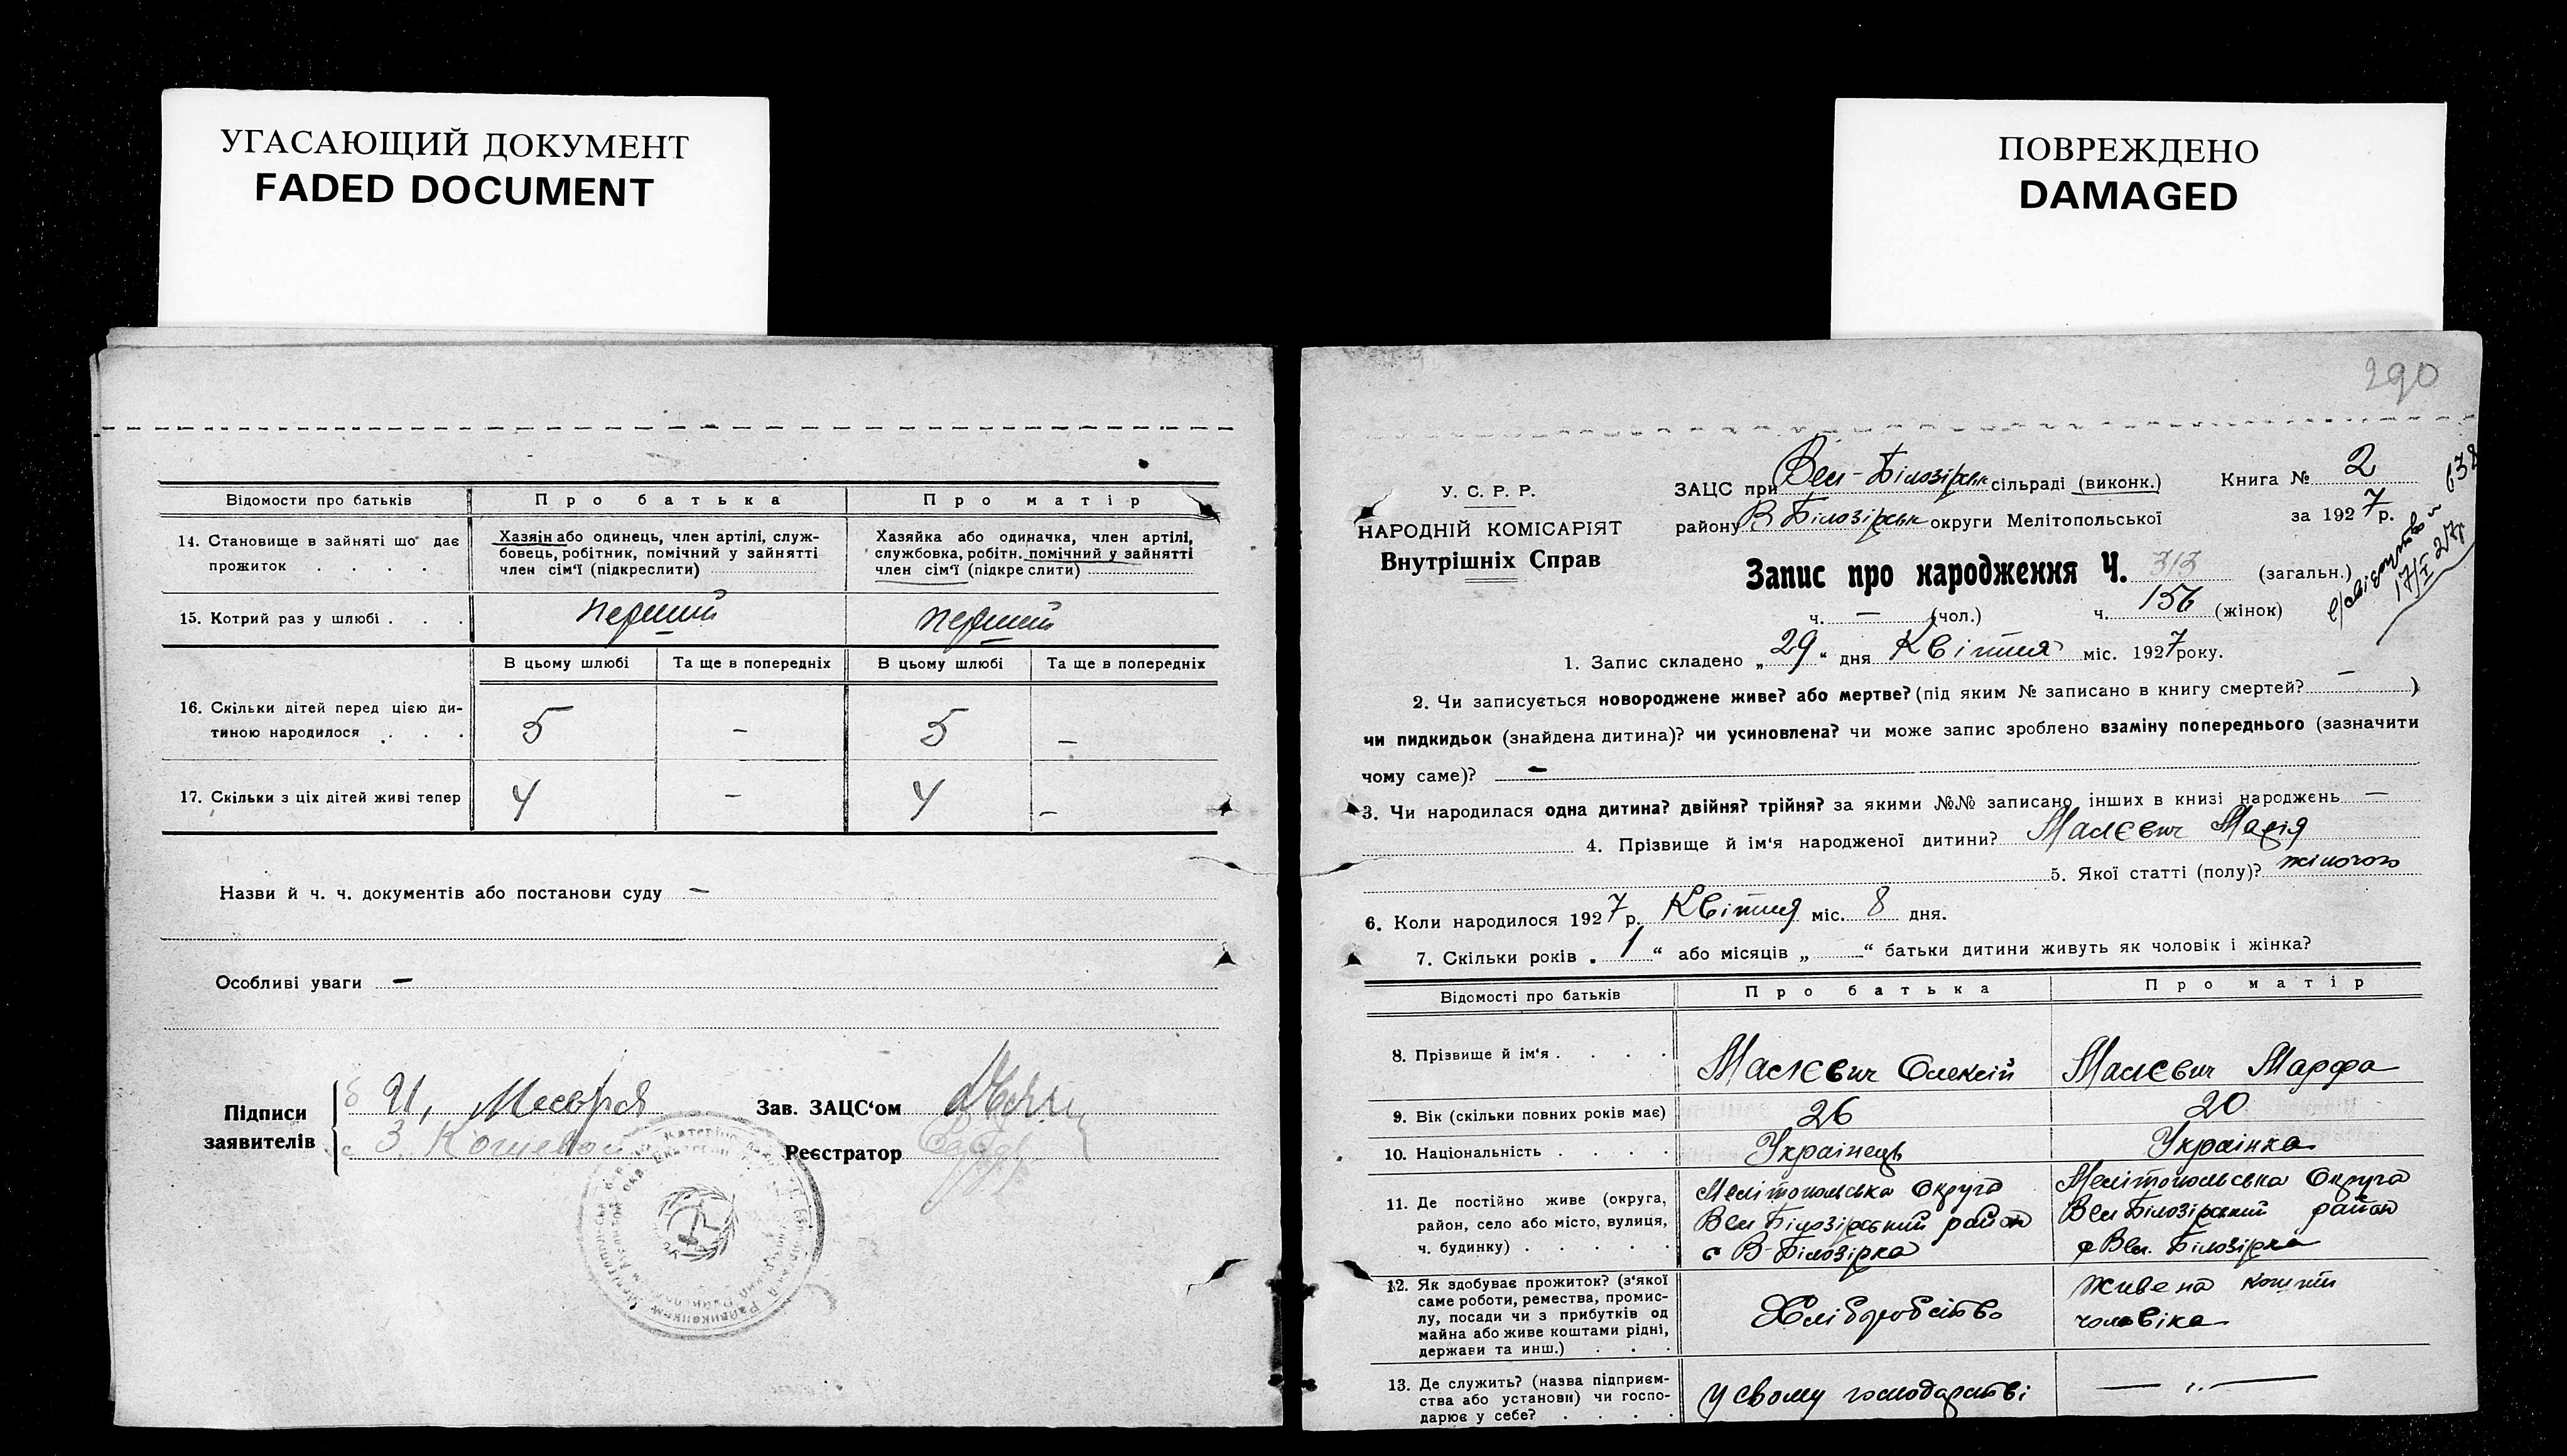 УГАСАЮЩИЙ ДОКУМЕНТ
FADED DOCUMENT
Відомости про батьків
Про батька
Про матір
14. Становище в зайняті що дає прожиток . . . .
Хазяін або одинець, член артілі, служ-
бовець, робітник, помічний у зайнятті
член сім'ї (підкреслити)
Хазяйка або одиначка, член артілі,
службовка, робітн. помічний у зайнятті
член сім'ї (підкреслити)
15. Котрий раз у шлюбі . . .
перший
перший
В цьому шлюбі
Та ще в попередніх
В цьому шлюбі
Та ще в попередніх
16. Скільки дітей перед цією ди-
тиною народилося . . .
5 – 5 –
17. Скільки з ціх дітей живі тепер
4 – 4 –
Назви й ч. ч. документів або постанови суду –
Особливі уваги –
Підписи
заявителів
Зав. ЗАЦС'ом
Реєстратор
ПОВРЕЖДЕНО
DAMAGED
290
У. С. Р. Р.
НАРОДНІЙ КОМІСАРІЯТ
Внутрішніх Справ
ЗАЦС при Вел-Білозірськ сільраді (виконк.)
району В Білозірськ округи Мелітопольської
Книга № 2
за 1927 р.
Запис про народження Ч. 313 (загальн.)
ч. — (чол.) ч. 156 (жінок)
1. Запис складено „29“ дня Квітня міс. 1927 року.
2. Чи записується новороджене живе? або мертве? (під яким № записано в книгу смертей? – )
чи пидкидьок (знайдена дитина)? чи усиновлена? чи може запис зроблено взаміну попереднього (зазначити
чому саме)? –
3. Чи народилася одна дитина? двійня? трійня? за якими №№ записано інших в книзі народжень –
4. Прізвище й ім'я народженої дитини? Малєвич Марія
5. Якої статті (полу)? жіночого
6. Коли народилося 1927 р. Квітня міс. 8 дня.
7. Скільки років „ 1 “ або місяців „ “ батьки дитини живуть як чоловік і жінка?
Відомості про батьків
Про батька
Про матір
8. Прізвище й ім'я . . . .
Малєвич Олексій
Малєвич Марфа
9. Вік (скільки повних років має)
26
20
10. Національність . . . .
Українець
Українка
11. Де постійно живе (округа,
район, село або місто, вулиця,
ч. будинку) . . . . .
Мелітопольська Округа
Вел Білозірський район
с В-Білозірка
Мелітопольська Округа
Вел Білозірський район
с Вел. Білозірка
12. Як здобуває прожиток? (з'якої
саме роботи, ремества, промис-
лу, посади чи з прибутків од
майна або живе коштами рідні,
держави та инш.) . . .
Хліборобство
живе на кошти
чоловіка
13. Де служить? (назва підприєм-
ства або установи) чи госпо-
дарює у себе? . . . .
У свому господарстві
— „ —